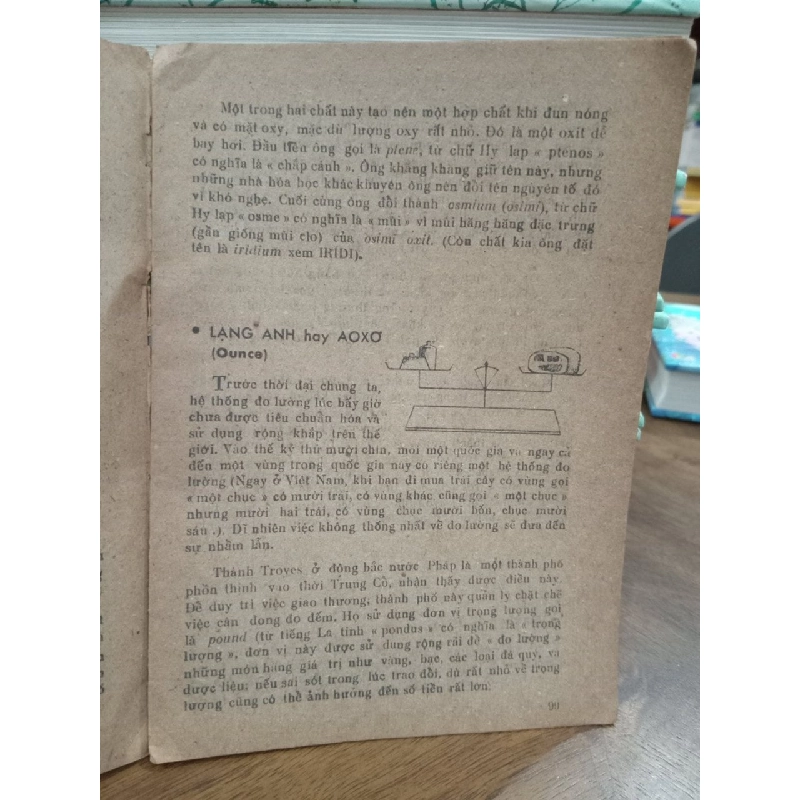 Một trong hai chất này tạo nên một hợp chất khi đun nóng
và có mặt oxy, mặc dù lượng oxy rất nhỏ. Đó là một oxit dễ
bay hơi. Đầu tiên ông gọi là ptenè, từ chữ Hy lạp « ptenos »
có nghĩa là « chắp cánh ». Ông khăng khăng giữ tên này, nhưng
những nhà hóa học khác khuyên ông nên đổi tên nguyên tố đó
vì khó nghe. Cuối cùng ông đổi thành osmium (osimi), từ chữ
Hy lạp « osme » có nghĩa là « mùi » vì mùi hăng hăng đặc trưng
(gần giống mùi clo) của osimi oxit. (Còn chất kia ông đặt
tên là iridium xem IRIDI).
• LẠNG ANH hay AOXƠ
(Ounce)
Trước thời đại chúng ta,
hệ thống đo lường lúc bấy giờ
chưa được tiêu chuẩn hóa và
sử dụng rộng khắp trên thế
giới. Vào thế kỷ thứ mười chín, mỗi một quốc gia và ngay cả
đến một vùng trong quốc gia này có riêng một hệ thống đo
lường (Ngay ở Việt Nam, khi bạn đi mua trái cây có vùng gọi
« một chục » có mười trái, có vùng khác cũng gọi « một chục »
nhưng mười hai trái, có vùng chục mười bốn, chục mười
sáu .). Dĩ nhiên việc không thống nhất về đo lường sẽ đưa đến
sự nhầm lẫn.
Thành Troyes ở đông bắc nước Pháp là một thành phố
phồn thịnh vào thời Trung Cổ, nhận thấy được điều này.
Để duy trì việc giao thương, thành phố này quản lý chặt chẽ
việc cân đong đo đếm. Họ sử dụng đơn vị trọng lượng gọi
là pound (từ tiếng La tinh « pondus » có nghĩa là « trọng
lượng », đơn vị này được sử dụng rộng rãi để « đo lượng »
những món hàng giá trị như vàng, bạc, các loại đá quý, và
dược liệu; nếu sai sót trong lúc trao đổi, dù rất nhỏ về trọng
lượng cũng có thể ảnh hưởng đến số tiền rất lớn.
99